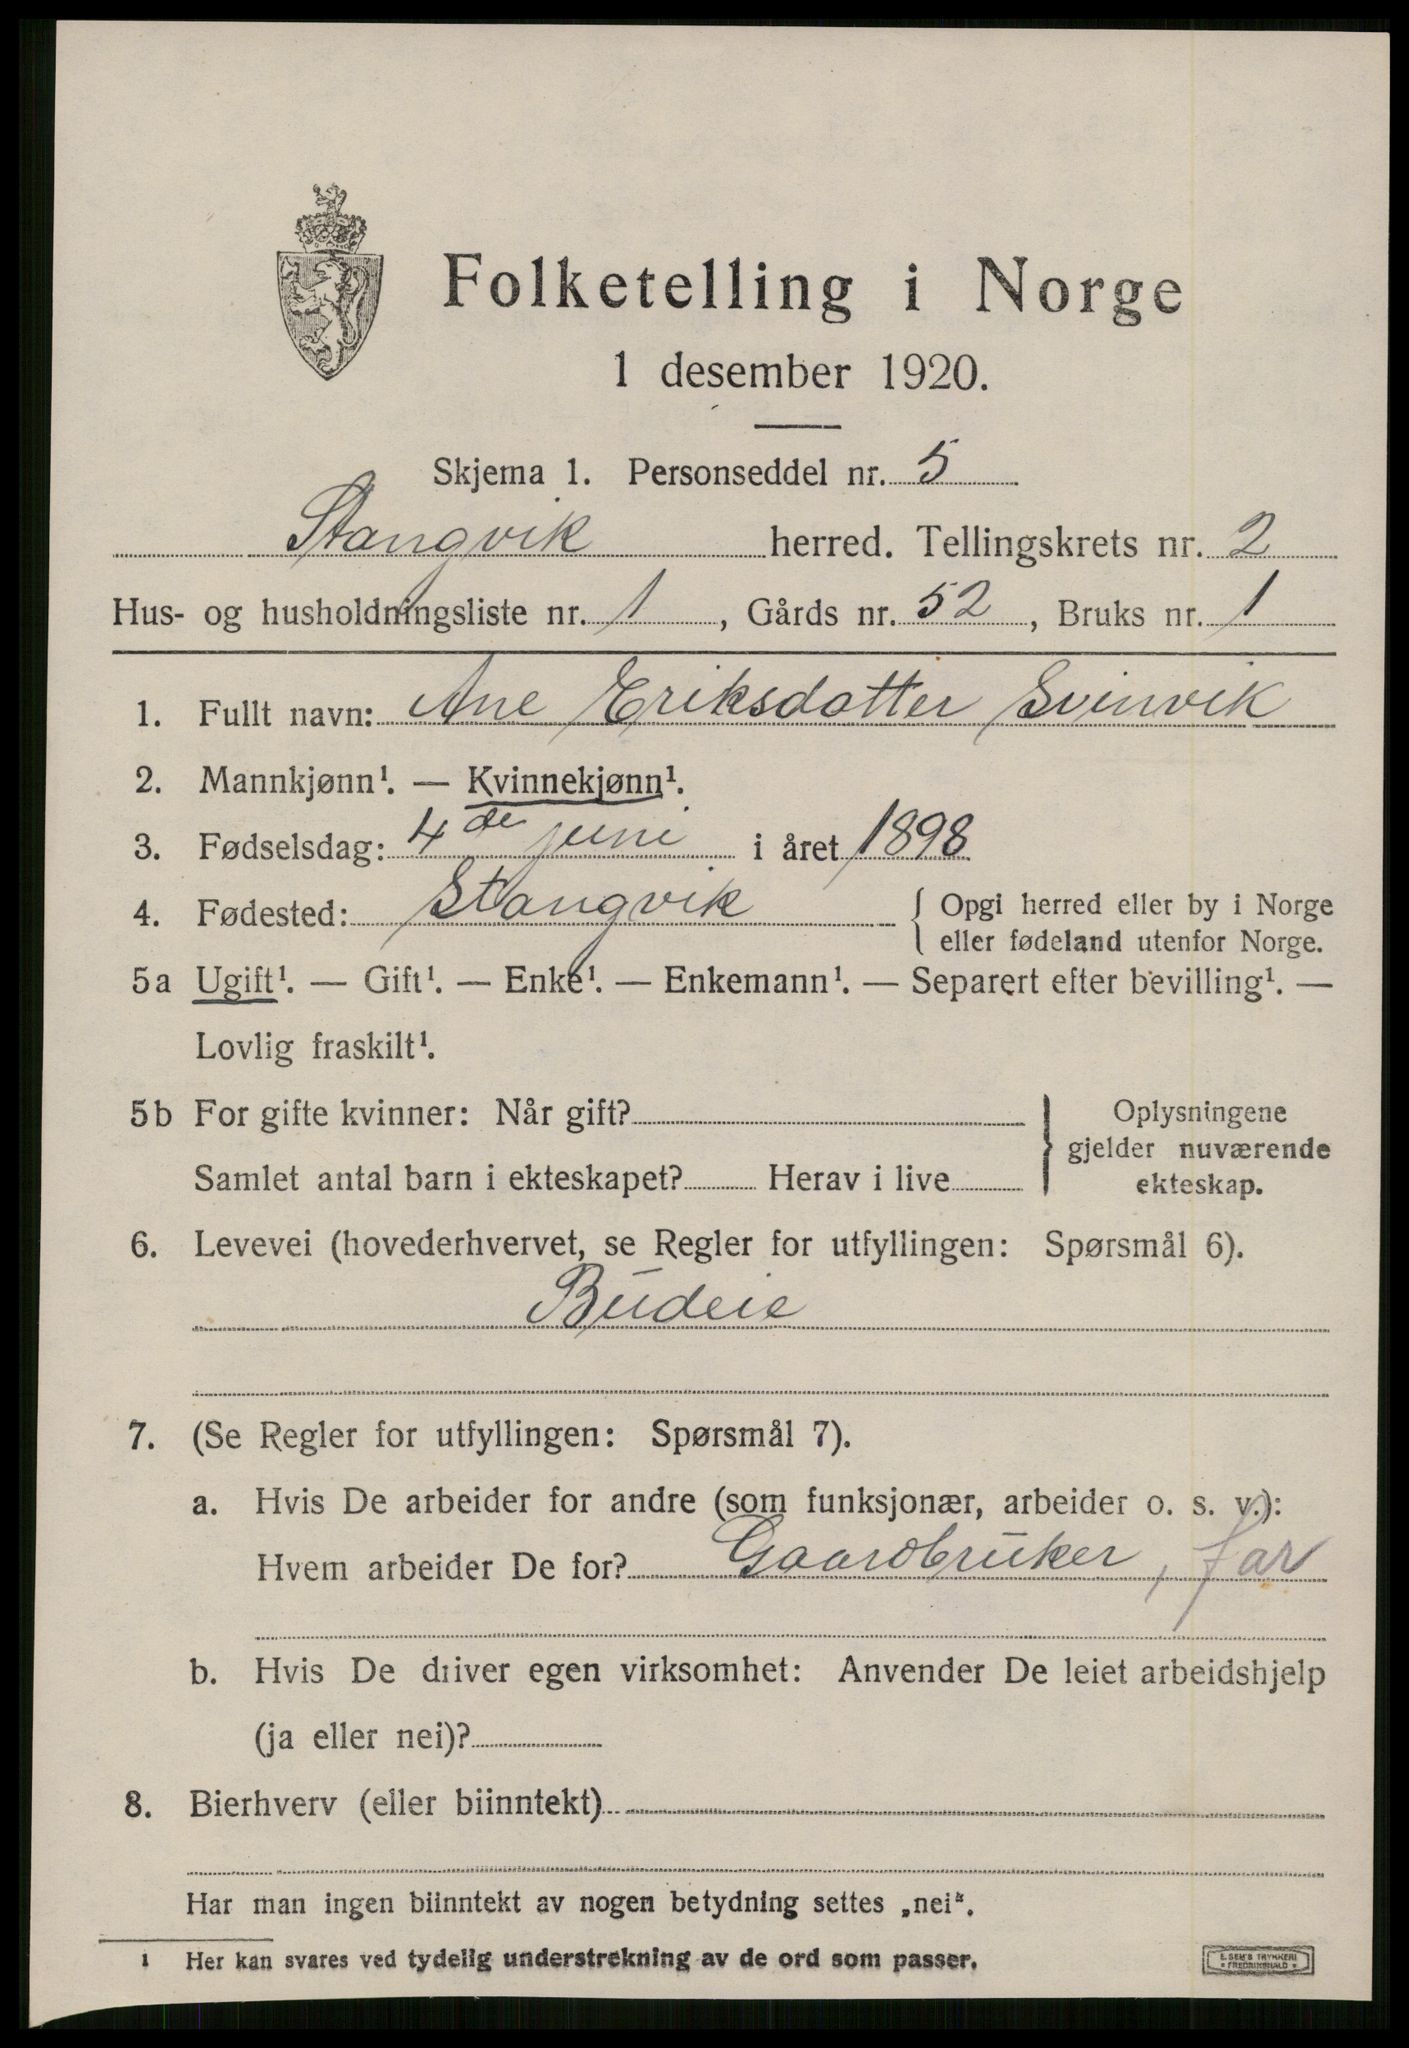 Folketelling i Norge
1 desember 1920.
Skjema 1. Personseddel nr. 5
Stangvik herred. Tellingskrets nr. 2
Hus- og husholdningsliste nr. 1, Gårds nr. 52, Bruks nr. 1
1. Fullt navn: Ane Eriksdatter Svinvik
2. Mannkjønn¹. — Kvinnekjønn¹.
3. Fødselsdag: 4de juni i året 1898
4. Fødested: Stangvik { Opgi herred eller by i Norge
eller fødeland utenfor Norge.
5a Ugift¹. — Gift¹. — Enke¹. — Enkemann¹. — Separert efter bevilling¹. —
Lovlig fraskilt¹.
5b For gifte kvinner: Når gift? } Oplysningene
gjelder nuværende
Samlet antal barn i ekteskapet? Herav i live ekteskap.
6. Levevei (hovederhvervet, se Regler for utfyllingen: Spørsmål 6).
Budeie
7. (Se Regler for utfyllingen: Spørsmål 7).
a. Hvis De arbeider for andre (som funksjonær, arbeider o. s. v.):
Hvem arbeider De for? Gaardbruker, far
b. Hvis De driver egen virksomhet: Anvender De leiet arbeidshjelp
(ja eller nei)?
8. Bierhverv (eller biinntekt)
Har man ingen biinntekt av nogen betydning settes „nei“.
1 Her kan svares ved tydelig understrekning av de ord som passer.
E. SEM'S TRYKKERI
* FREDRIKSHALD *